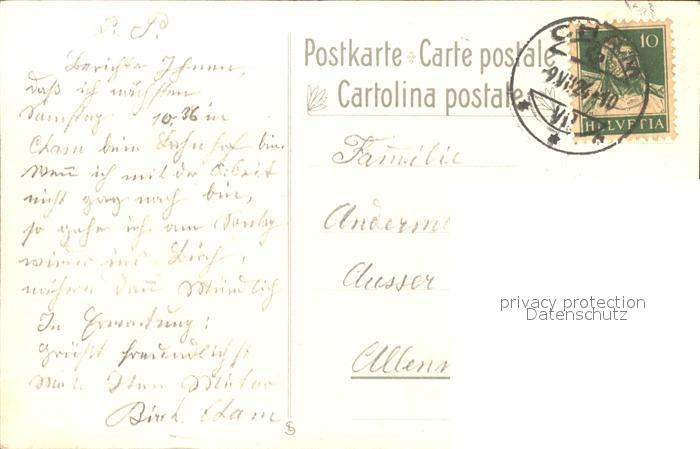 P. P.
Berichte Ihnen,
daß ich nächsten
Samstag 10.36 in
Cham beim Bahnhof bin
wenn ich mit der Arbeit
nicht ganz nach bin,
so gehe ich am Sonntag
wieder ins Birch,
näheres dann Mündlich
In Erwartung:
Grüßt freundlichst
Birch. Cham
Postkarte Carte postale
Cartolina postale
10
HELVETIA
Familie
Anderm
Ausser
Allenw
privacy protection
Datenschutz